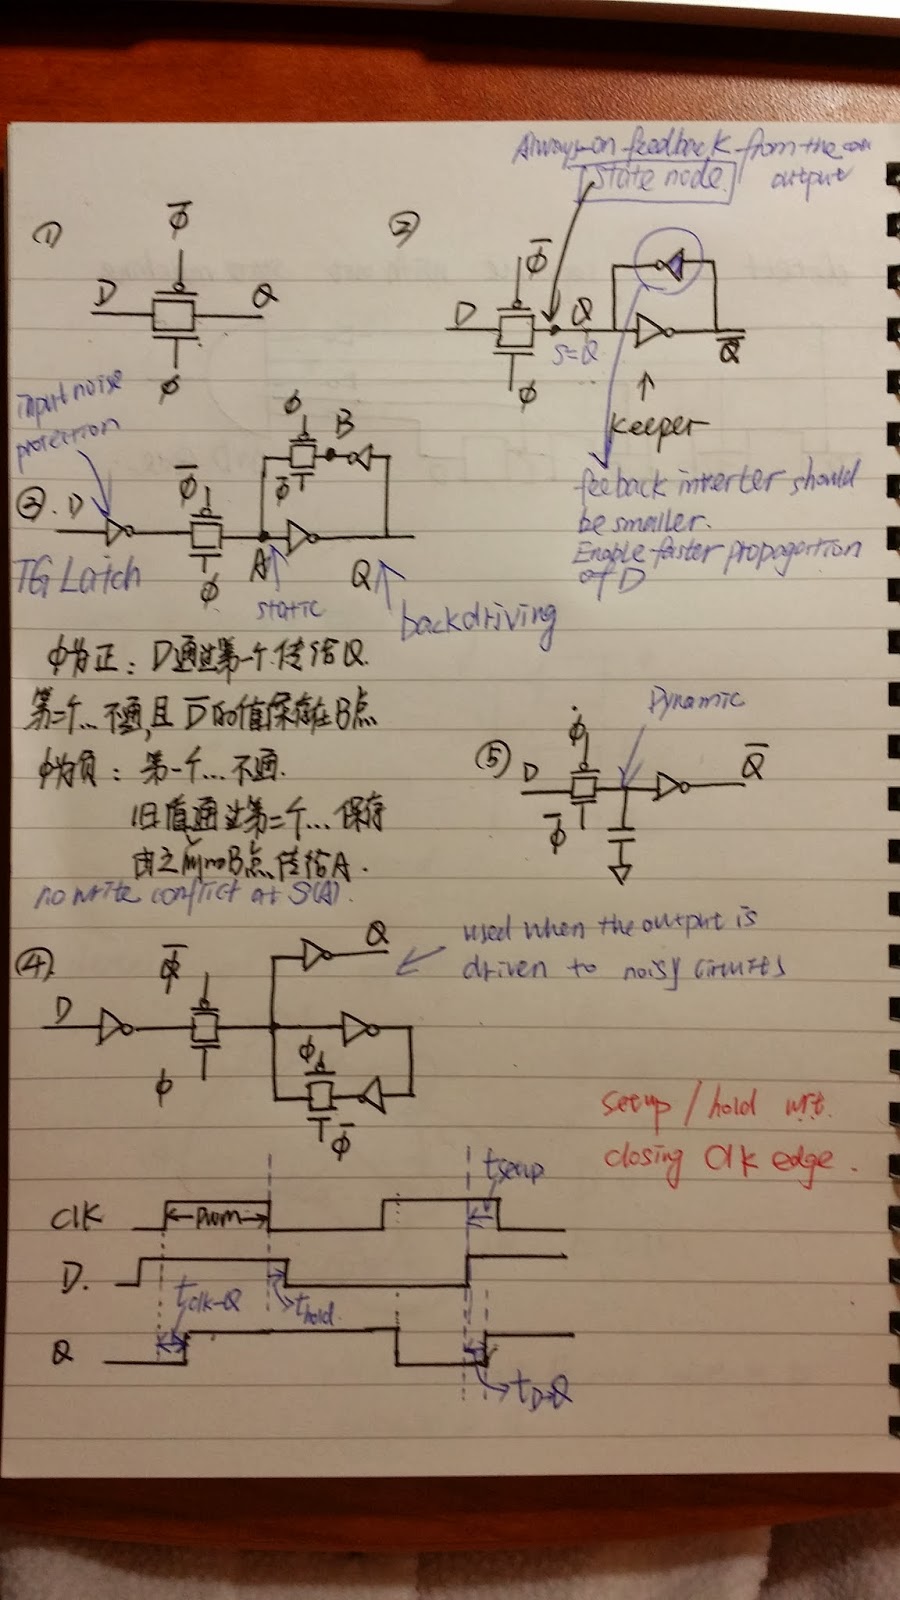 Always-on feedback from the
output
state node.
①
Φ̅
D
Q
Φ
②
Φ̅
D
Q
S=Q
Φ
Q̅
Keeper
feeback inverter should
be smaller.
Enable faster propagartion
of D
input noise
protection
③. D
Φ̅
Φ
Φ
B
Φ̅
A
Q
TG Latch
static
backdriving
Φ为正: D通过第一个传给Q.
第二个...不通,且D̅的值保存在B点
Φ为负: 第一个...不通.
旧值通过第二个...保存
由之前的B点传给A.
no write conflict at S(A).
⑤
D
Φ
Φ̅
Dynamic
Q̅
④
D
Φ̅
Φ
Q
Φ
Φ̅
used when the output is
driven to noisy circuits
setup/hold wrt.
closing Clk edge.
tsetup
Clk
D.
tclk-Q
thold
Q
tD→Q